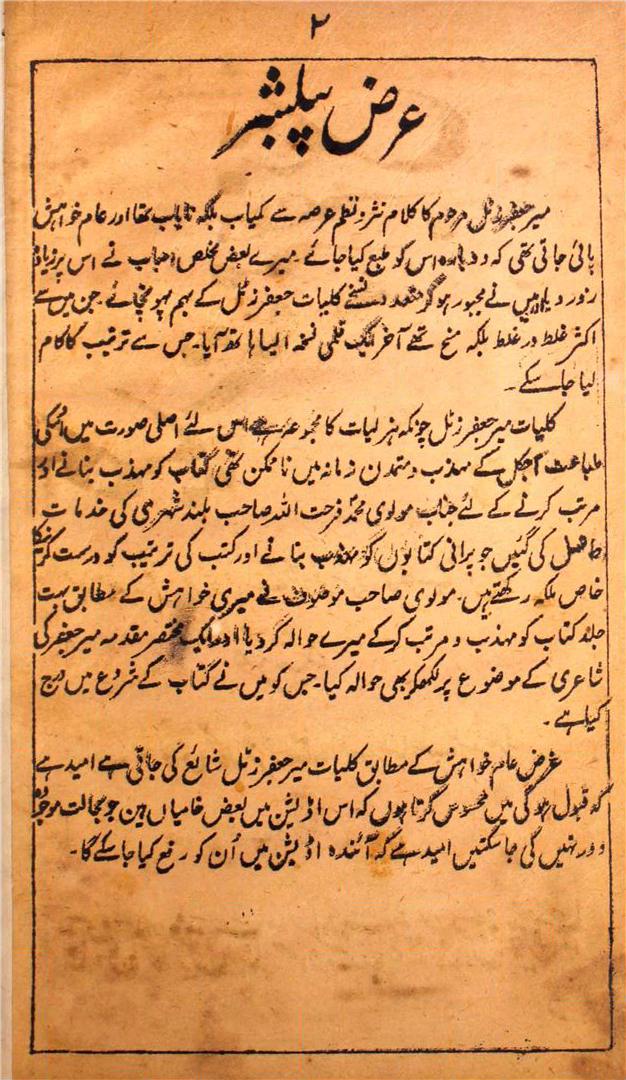 ۲
عرض پبلشر
میر جعفر زٹل مرحوم کا کلام نثر و نظم عرصہ سے کمیاب بلکہ نایاب تھا اور عام خواہش
پائی جاتی تھی کہ دوبارہ اس کو طبع کیا جائے۔ میرے بعض مخلص احباب نے اس پر زیادہ
زور دیا اور میں نے مجبور ہو کر متعدد نسخے کلیات جعفر زٹل کے بہم پہونچائے۔ جن میں سے
اکثر غلط در غلط بلکہ مسخ تھے آخر ایک قلمی نسخہ ایسا ہاتھ آیا۔ جس سے ترتیب کا کام
لیا جا سکے۔
کلیات میر جعفر زٹل چونکہ ہزلیات کا مجموعہ ہے اس لئے اصلی صورت میں اسکی
طباعت آجکل کے مہذب و متمدن زمانہ میں ناممکن تھی کتاب کو مہذب بنانے اور
مرتب کرنے کے لئے جناب مولوی محمد فرحت اللہ صاحب بلند شہری کی خدمات
حاصل کی گئیں جو پرانی کتابوں کو مہذب بنانے اور کتب کی ترتیب کو درست کرنیکا
خاص ملکہ رکھتے ہیں۔ مولوی صاحب موصوف نے میری خواہش کے مطابق بہت
جلد کتاب کو مہذب و مرتب کر کے میرے حوالہ کر دیا اور ایک مختصر مقدمہ میر جعفر کی
شاعری کے موضوع پر لکھکر بھی حوالہ کیا۔ جس کو میں نے کتاب کے شروع میں درج
کیا ہے۔
غرض عام خواہش کے مطابق کلیات میر جعفر زٹل شائع کی جاتی ہے امید ہے
کہ قبول ہو گی میں محسوس کرتا ہوں کہ اس اڈیشن میں بعض خامیاں ہیں جو بحالت موجودہ
دور نہیں کی جا سکتیں امید ہے کہ آئندہ اڈیشن میں اُن کو رفع کیا جا سکے گا۔